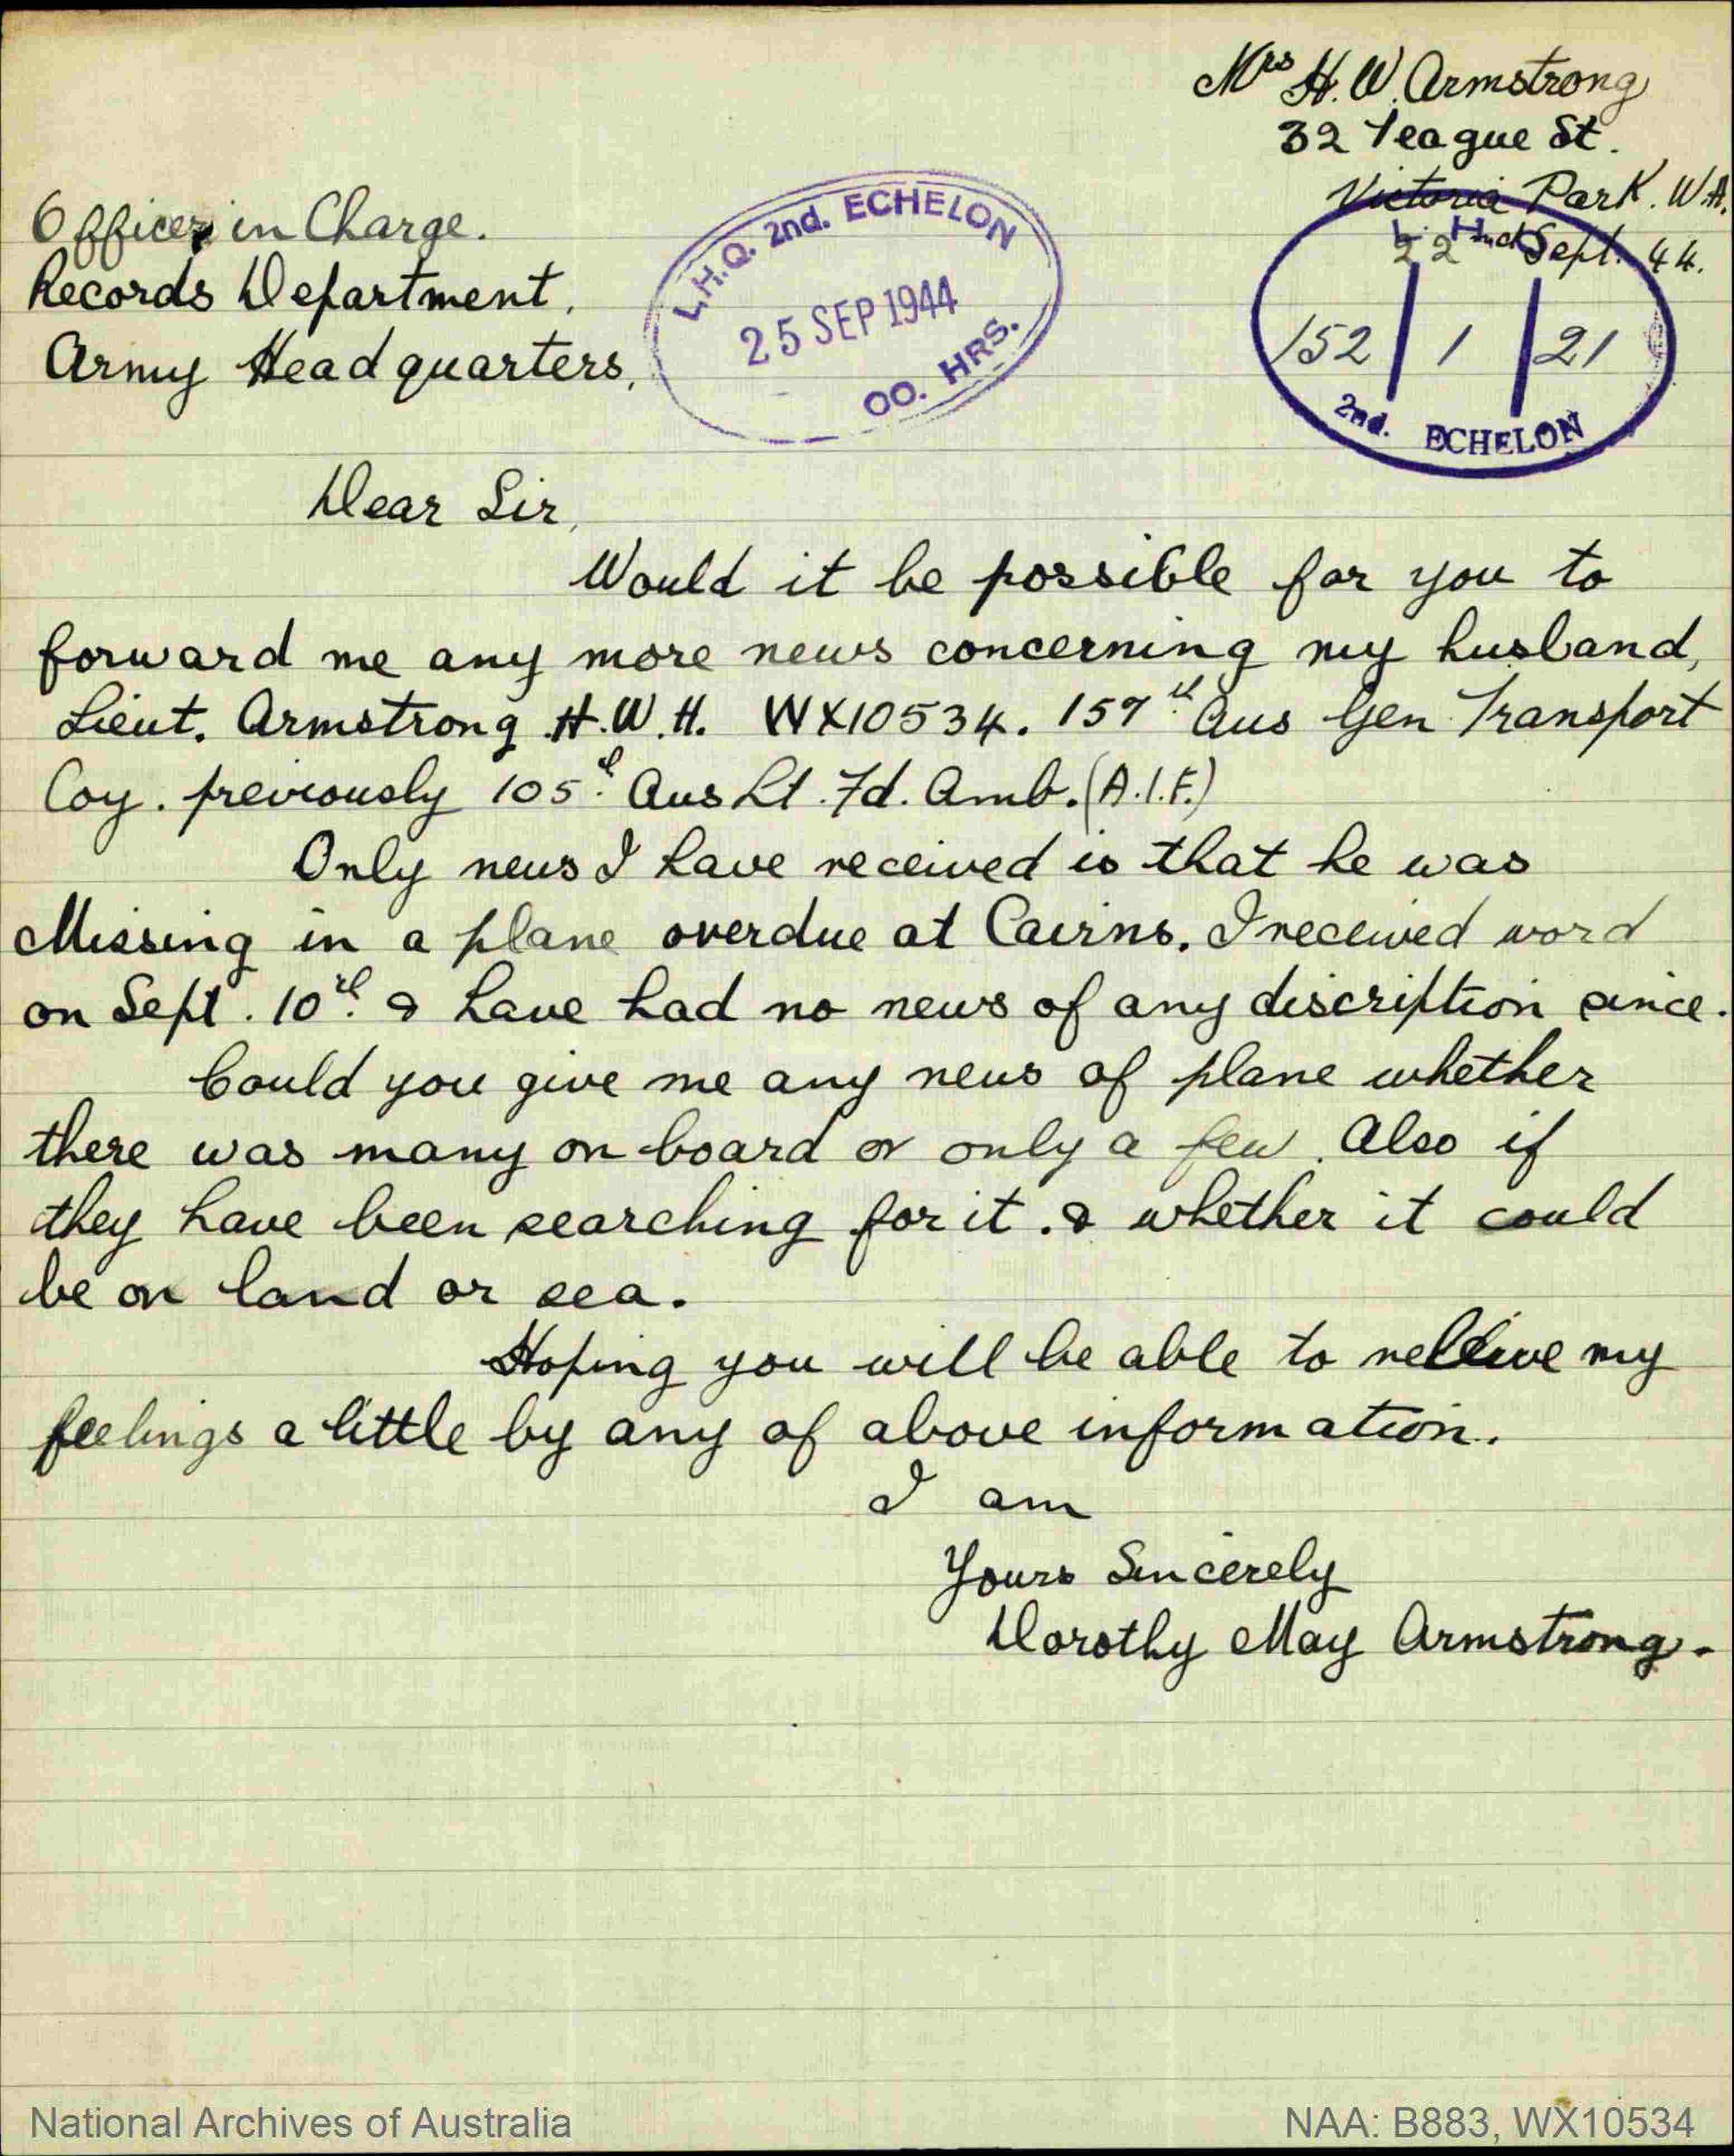 Mrs H. W. Armstrong
32 Teague St.
Victoria Park. W.A.
22nd Sept. 44.
Officer in Charge.
Records Department.
Army Headquarters.
L.H.Q. 2nd. ECHELON
25 SEP 1944
00. HRS.
152 / 1 / 21
2nd. ECHELON
Dear Sir,
Would it be possible for you to
forward me any more news concerning my husband,
Lieut. Armstrong H.W.H. WX10534. 157th Aus Gen Transport
Coy. previously 105th Aus Lt. Fd. Amb. (A.I.F.)
Only news I have received is that he was
Missing in a plane overdue at Cairns. I received word
on Sept. 10th & have had no news of any discription since.
Could you give me any news of plane whether
there was many on board or only a few. Also if
they have been searching for it. & whether it could
be on land or sea.
Hoping you will be able to relieve my
feelings a little by any of above information.
I am
Yours Sincerely
Dorothy May Armstrong.
National Archives of Australia
NAA: B883, WX10534